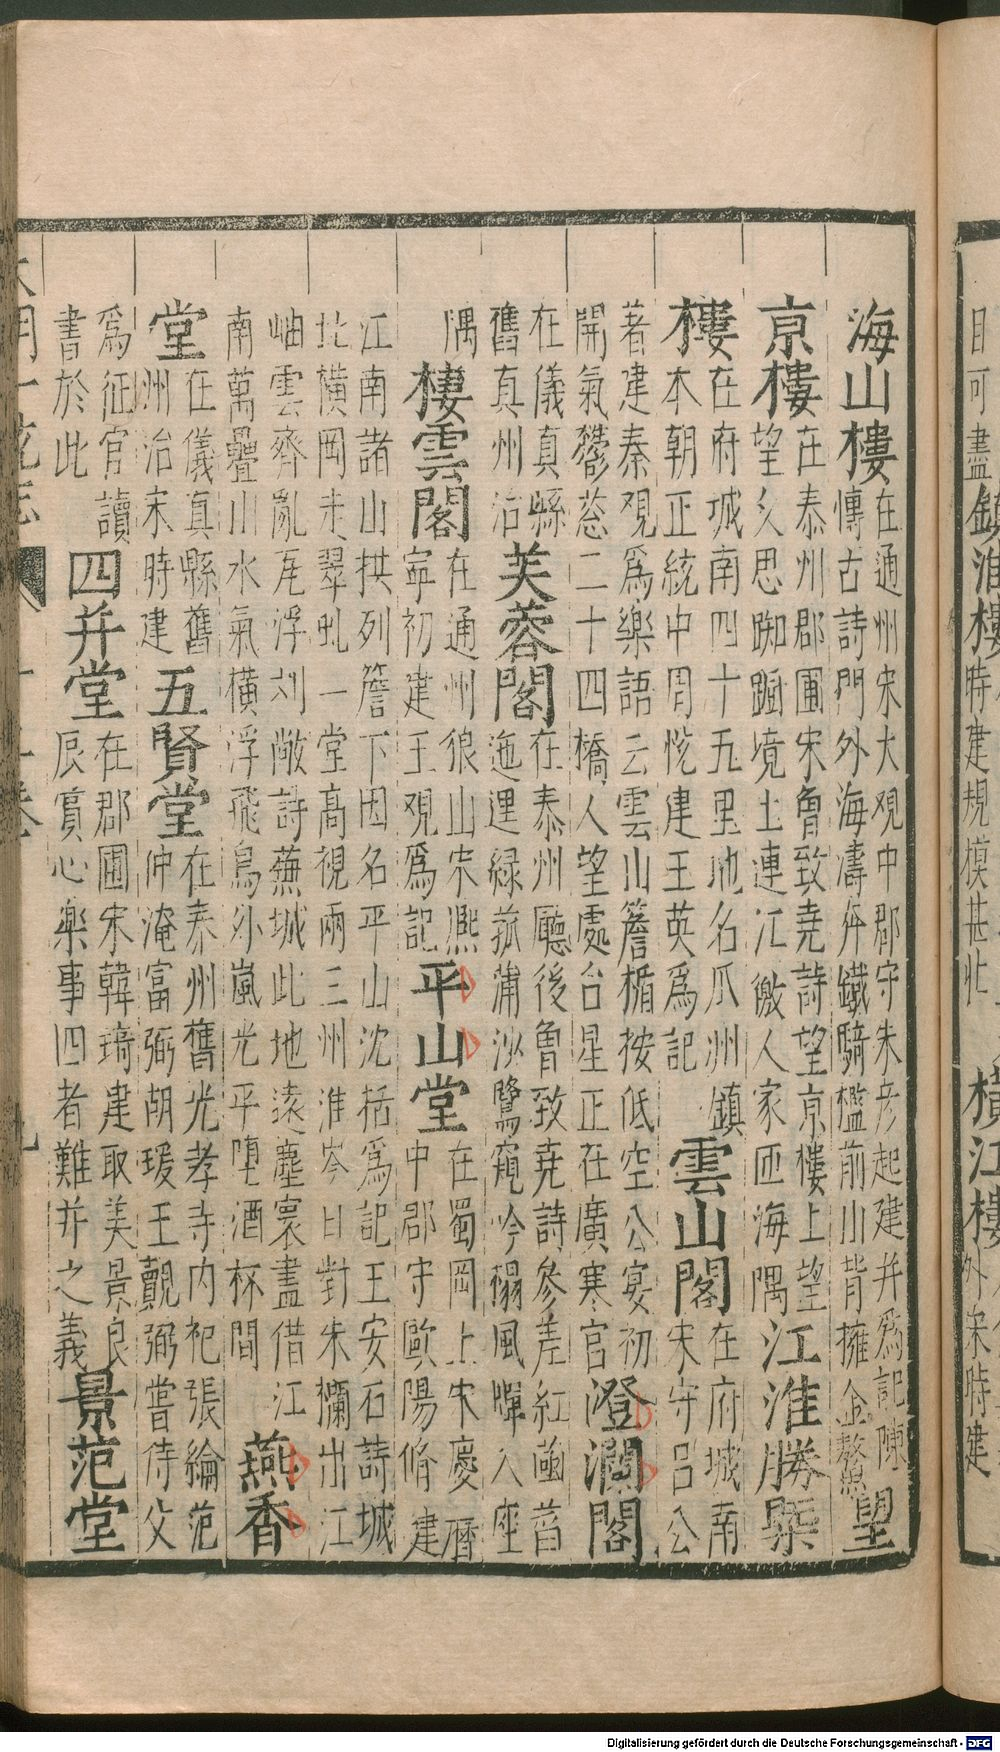 目可盡鎮淮樓時建規模甚壯 橫江樓外宋時建
海山樓在通州宋大觀中郡守朱彥起建并爲記陳
傳古詩門外海濤舟鐵騎檻前川背擁金鰲望
京樓在泰州郡圃宋魯致堯詩望京樓上望
望久思踟躕境土連江徼人家匝海隅江淮勝槩
樓在府城南四十五里地名瓜州鎮
本朝正統中周忱建王英爲記雲山閣在府城南
宋守呂公
著建秦觀爲樂語云雲山簷楯按低空公宴初
開氣鬱葱二十四橋人望處台星正在廣寒宮澄瀾閣
在儀真縣
舊真州治芙蓉閣在泰州廳後魯致堯詩參差紅菡萏
迤邐緑菰蒲沙鷺窺吟榻風蟬入座
隅 棲雲閣在通州狼山宋熈
寧初建王觀爲記平山堂在蜀岡上宋慶曆
中郡守歐陽脩建
江南諸山拱列簷下因名平山沈括爲記王安石詩城
北橫岡走翠虬一堂高視兩三州淮岑日對朱欄出江
岫雲齊亂瓦浮刘敞詩蕪城此地遠塵寰盡借江
南萬疊山水氣橫浮飛鳥外嵐光平墮酒杯間 燕香
堂在儀真縣舊
州治宋時建五賢堂在泰州舊光孝寺内祀張綸范
仲淹富弼胡瑗王覿弼嘗侍父
爲征官讀
書於此 四并堂在郡圃宋韓琦建取美景良
辰賞心樂事四者難并之義景范堂
Digitalisierung gefördert durch die Deutsche Forschungsgemeinschaft - DFG